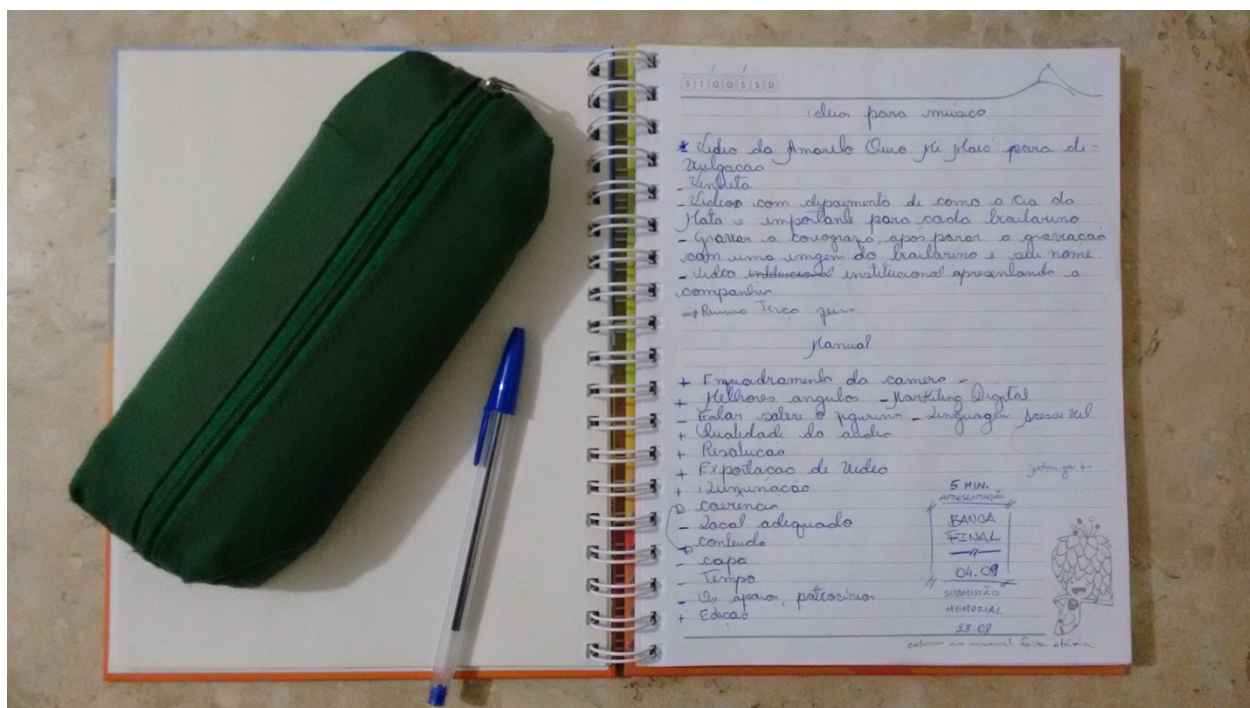 S T Q Q S S D
ideias para músico
* Video da Amarelo Ouro Mi Maió para di-
vulgacao
- Vinheta
- Videos com depoimento de como a Cia da
Mata é importante para cada bailarino
- Gravar a coreografia, após parar a gravacao
com uma imgem do bailarino e seu nome
- video institucional apresentando a
companhia
→ Reunião Terça feira
Manual
+ Enquadramento da camera -
+ Melhores angulos - Markiting Digital
- Falar sobre o figurino - Linguagem Acessivel
+ Qualidade do audio
+ Resolucao
+ Exportacao de Video
+ iluminacao
coerencia
- Local adequado
- conteudo
- capa
- Tempo
- Os apoios, patrocinios
+ Edicao
5 MIN.
APRESENTAÇÃO
BANCA
FINAL
04.09
SUBMISSÃO
MEMORIAL
28.08
colocar no manual faixa etária